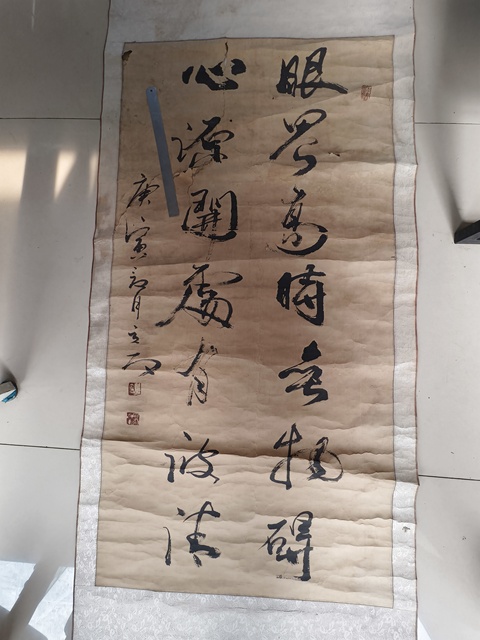 眼界高時無物礙
心源開處有波清
庚寅月